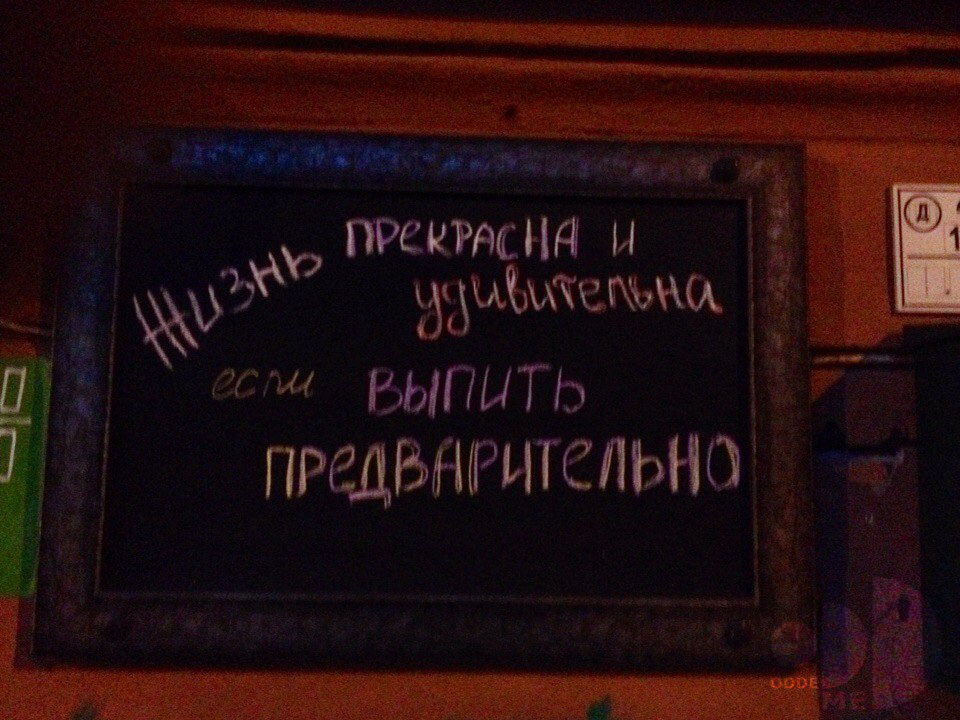 Жизнь ПРЕКРАСНА И
удивительна
если ВЫПИТЬ
ПРЕДВАРИТЕЛЬНО
Д